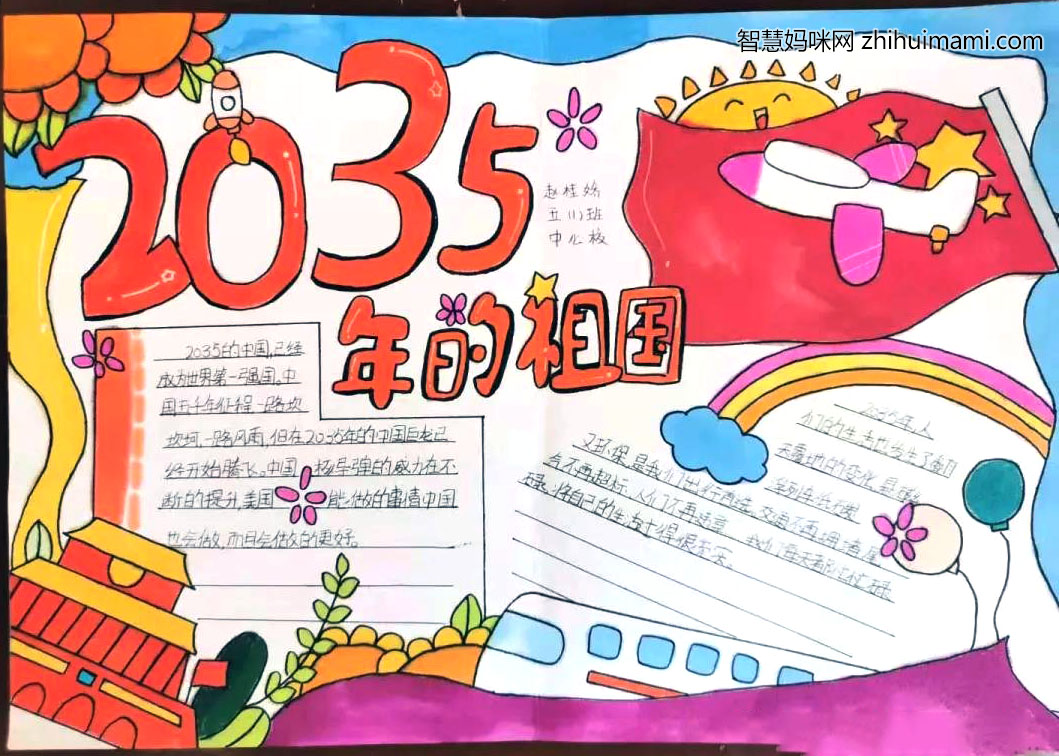 智慧妈咪网 zhihuimami.com
2035
年的祖国
赵桂娇
五(1)班
中心校
2035的中国,已经
成为世界第一强国。中
国五千年征程一路坎
坎坷,一路风雨,但在2035年的中国巨龙已
经开始腾飞。中国 核导弹的威力在不
断的提升,美国 能做的事情中国
也会做,而且会做的更好。
2035年,人
们的生活也发生了翻
天覆地的变化,是
又环保,是我们出行 交通不再拥堵,尾
会不再超标,人们不再 我们每天都忙忙碌
碌。将自己的生活过得很充实。